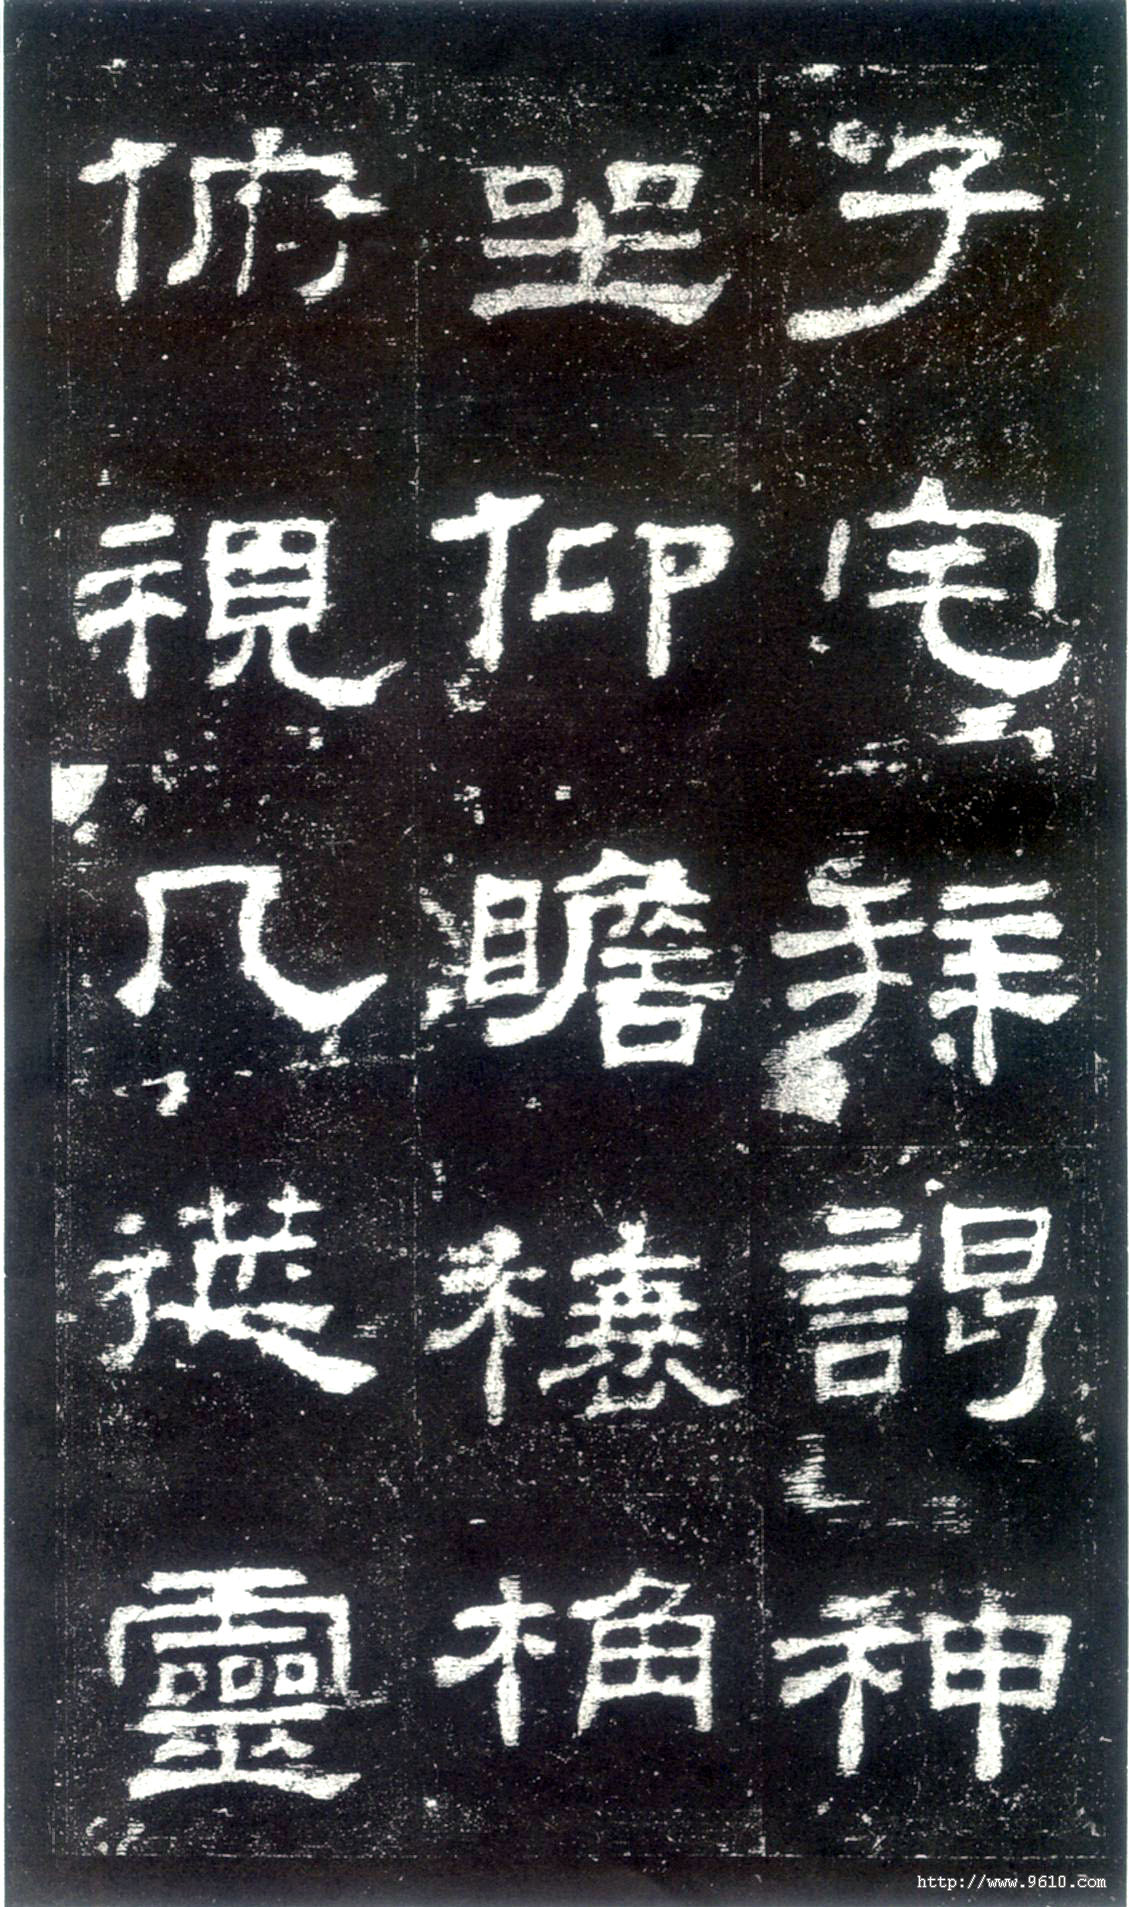 子宅拜謁神
坐仰瞻榱桷
俯視几筵靈
http://www.9610.com